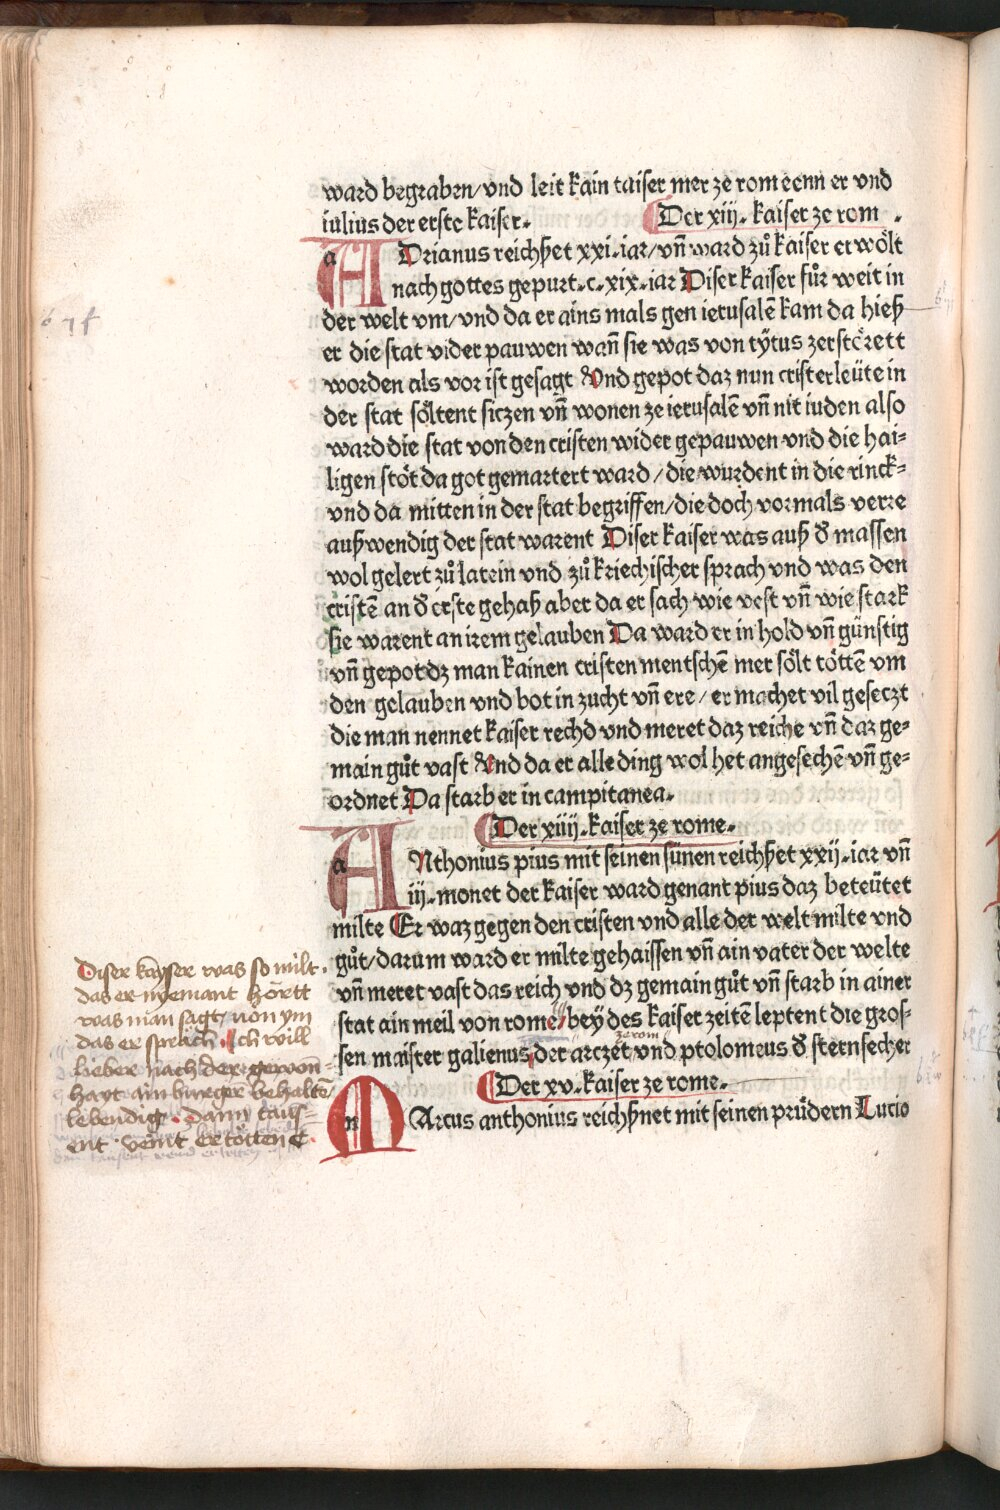 ward begraben/vnd leit kain kaiser mer ze rom denn er vnd
iulius der erste kaiser.
Der xiij. kaiser ze rom .
ADrianus reichßet xxi.iar/vn̄ ward zů kaiser erwoͤlt
nach gottes gepurt.c.xix.iar Diser kaiser fůr weit in
der welt vm/vnd da er ains mals gen ierusalē kam da hieß
er die stat vider pauwen wan̄ sie was von tÿtus zerstoͤrett
worden als vor ist gesagt Vnd gepot daz nun cristerleüte in
der stat soͤltent siczen vn̄ wonen ze ierusalē vn̄ nit iuden also
ward die stat von den cristen wider gepauwen vnd die hai-
ligen stoͤt da got gemartert ward/die wurdent in die rinck-
vnd da mitten in der stat begriffen/die doch vormals verre
außwendig der stat warent Diser kaiser was auß d̕ massen
wol gelert zů latein vnd zů kriechischer sprach vnd was den
cristē an d̕ erste gehaß aber da er sach wie vest vn̄ wie stark
sie warent an irem gelauben Da ward er in hold vn̄ günstig
vn̄ gepot dz man kainen cristen mentschē mer soͤlt toͤttē vm
den gelauben vnd bot in zucht vn̄ ere/er machet vil gesetzt
die man nennet kaiser rechd vnd meret daz reiche vn̄ daz ge-
main gůt vast Vnd da er alle ding wol het angesechē vn̄ ge-
ordnet Da starb er in campitanea.
Der xiiij.kaiser ze rome.
ANthonius pius mit seinen sünen reichßet xxij.iar vn̄
iij.monet der kaiser ward genant pius daz beteütet
milte Er waz gegen den cristen vnd alle der welt milte vnd
gůt/darum ward er milte gehaissen vn̄ ain vater der welte
vn̄ meret vast das reich vnd dz gemain gůt vn̄ starb in ainer
stat ain meil von rome/bey des kaiser zeitē leptent die gros-
ze rom
sen maister galienus der arczet vnd ptolomeus d̕ sternsecher
Der xv.kaiser ze rome.
MArcus anthonius reichßnet mit seinen prüdern Lucio
Diser kayser was so milt.
das er nyemant hörett
was man sagt von ym
das er sprach. Ich will
lieber nach der gewon-
hayt ain burger behaltē
lebendig. dann taus-
ent veint er tötten